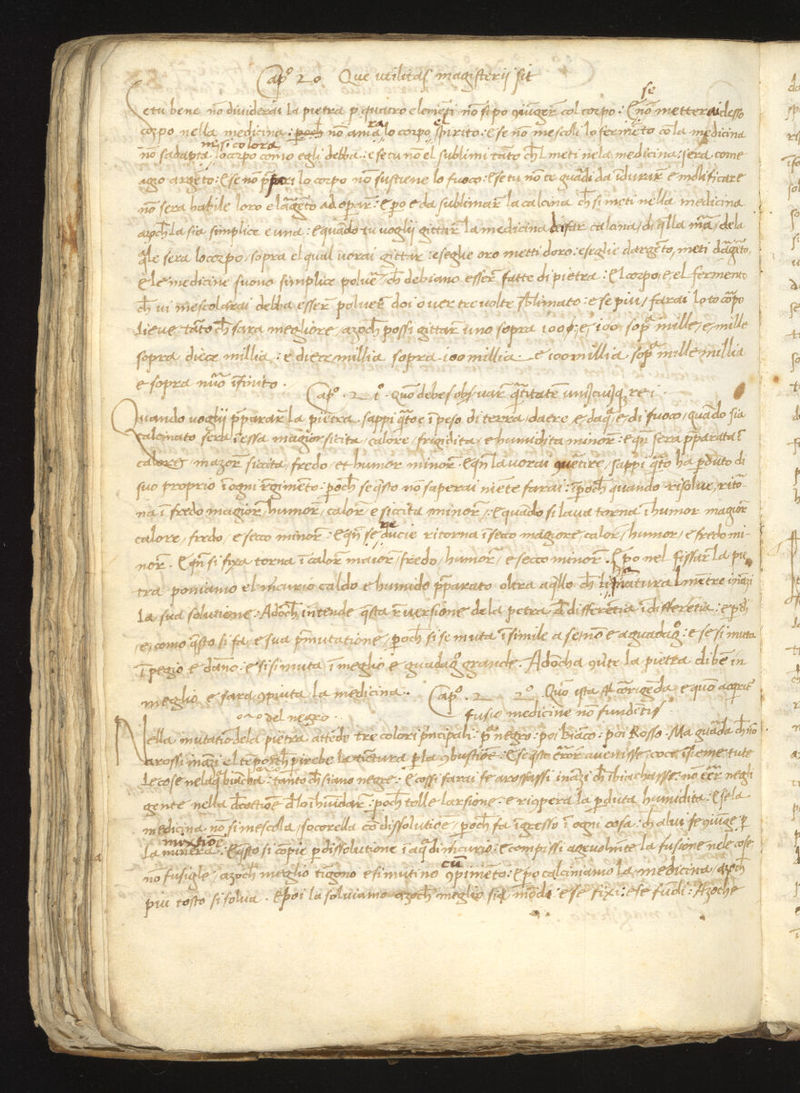 Cap° 20 Que utilitas magisterij sit
se
Se tu bene nō dividerai la pietra p quatro elemēti nō si po giūger col corpo: E nō metterai desso
ra el
corpo nella medicina: poch nō amara lo corpo spirito: e se nō mescoli lo fermēto cō la medicina
ne si colora
nō sadapta lo corpo como egli debba: e se tu nō el sublimi tāto ch l meti nela medicina: sera come
agio argēto: E se nō ppari lo corpo nō sustiene lo fuoco: E se tu nō te guardi da idurir e molificare
nō sera habile loro e largēto ad opar: E po e da sublimar la calcina ch si meti nella medicina
azoch la sia simplice e una: e quādo tu voglij gittar la medicina disfar calcina, di qlla mā, dela
qle sera lo corpo, sopra el qual vorai gittar: e seglie oro metti doro: e seglie dargēto, meti dargēto,
e le medicine suono simplice polver ch debiano esser fatte di pietra: E l corpo, e, el fermento
ch vi mescolarai debba esser polvere doi o ver tre volte sblimato: e se piu, farai lo to corpo
lieve, tāto ch sara megliore, azoch possi gittar uno sopra 100: e, 100, sopra mille, e, mille
sopra diece millia: e diece millia sopra 100 millia e 100 millia sopra mille millia
e sopra nūo ifinito.
Cap°. 21°. Quō debes observar qtitatem uniuscuiusq rei.
Quando voglij pparar la pietra, sappi qto e i peso di terra, daere e daq, e di fuoco, quādo sia
calcinato sera i essa magior sicita, calore, frigidita, e humidita minor: E qn sera pparata i
calore, mazor siccita, fredo et humor minor. E qn la vorai quertire, sappi qto ha pduto di
suo proprio i ogni regimēto: poch se qsto nō saperai niēte farai: Ipoch quando risolve, ritor
na i fredo magior, humor, calor e siccita minor: E quādo si lava torna i humor magior
re
calore, fredo, e secco minor: E qn se ducie ritorna i seco maggiore calor, humor, e fredo mi-
nor. E qn si fixa torna i calor maior, fredo, humor, e secco minor. E po nel fissar la pie
tra poniamo el mcurio caldo e humido pparato oltra aqllo ch li natura l mētre inanzi
la sua solutione: Adoch intende qsta rversione de la petra, di differētia i differētia: e poi
e, como qsto si fa, e sua pmutatione, poch si se muta i simile a se, nō e aguadag: e se si muta
i pegio e dāno: e si si muta i meglio e guadag grande. Adocha qvte la pietra dibē in
meglio e fara qpiuta la medicina.
Cap°. 22°. Quō ista sit corrigēda, e quō acqrit
del negro. fusio medicine nō fundētis
Nella mutatiō de la pietra attēde tre colori pncipali: p negro: poi biāco: poi Rosso. Ma guarda ch nō
arossi inazi el tēpo, ch pirebe la tictura p la qbustiōe: E se qsto error avenisse, coce isieme tute
le cose nela q biācha: tanto ch siano negre: E cossi farai se arossassi inazi ch ibiāchasse: nō esser negli
gente nella decoctiōe d lo ihūidar: poch tolle larsione, e riqpera la pduta humidita: E se la
medicina nō si mescola, socorella cō dissolutiōe, poch fa igresso i ogni cosa: ch alui se qiūge p
mixtiōe
la minera: E qsto si copie p dissolutione i aq di mcurio: e compissi agevolmēte la fusione nele cose
cū
nō fusigle, azoch meglio tigono e si mutino qpimēto: E po calciniamo la medicina, azoch
piu tosto si solva. E poi la solviamo azoch meglio si mōdi: e se fixi: e se fūdi: Azoche